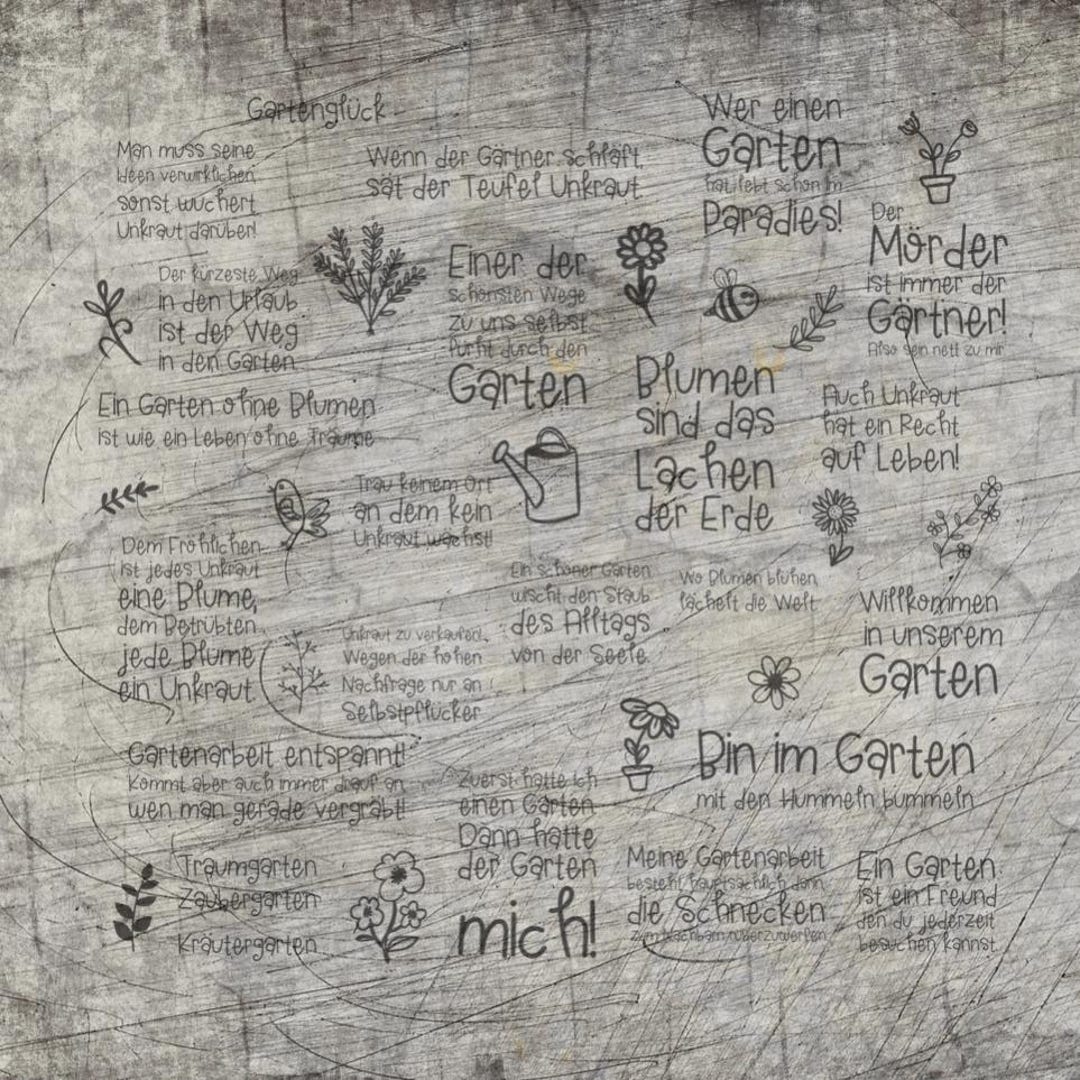 Gartenglück
Man muss seine
Ideen verwirklichen,
sonst wuchert
Unkraut darüber!
Wenn der Gärtner schläft,
sät der Teufel Unkraut.
Wer einen
Garten
hat, lebt schon im
Paradies!
Der
Mörder
ist immer der
Gärtner!
Also sein nett zu mir
Der kürzeste Weg
in den Urlaub
ist der Weg
in den Garten
Einer der
schönsten Wege
zu uns selbst
führt durch den
Garten
Ein Garten ohne Blumen
ist wie ein Leben ohne Träume
Blumen
sind das
Lachen
der Erde
Auch Unkraut
hat ein Recht
auf Leben!
Trau keinem Ort
an dem kein
Unkraut wächst!
Dem Fröhlichen
ist jedes Unkraut
eine Blume,
dem Betrübten
jede Blume
ein Unkraut.
Ein schöner Garten
wischt den Staub
des Alltags
von der Seele.
Wo Blumen blühen,
lächelt die Welt
Willkommen
in unserem
Garten
Unkraut zu verkaufen!
Wegen der hohen
Nachfrage nur an
Selbstpflücker
Gartenarbeit entspannt!
Kommt aber auch immer drauf an,
wen man gerade vergräbt!
Bin im Garten
mit den Hummeln bummeln
Zuerst hatte ich
einen Garten
Dann hatte
der Garten
mich!
Traumgarten
Zaubergarten
Kräutergarten
Meine Gartenarbeit
besteht hauptsächlich darin,
die Schnecken
zum Nachbarn rüberzuwerfen
Ein Garten
ist ein Freund
den du jederzeit
besuchen kannst.